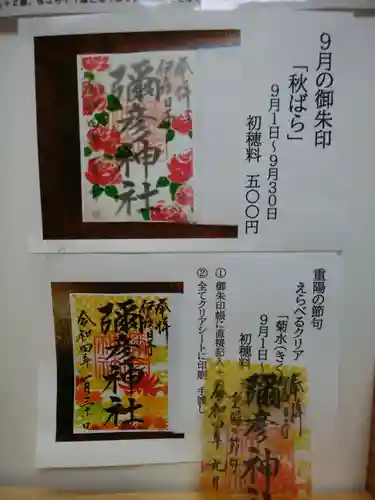 9月の御朱印
「秋ばら」
9月1日～9月30日
初穂料 五〇〇円
奉拝
伊勢町
彌彦神社
重陽の節句
えらべるクリア
「菊水（きく
9月1日～
初穂
① 御朱印帳に直接記入
② 全てクリアシートに印刷、手渡し
奉拝
伊勢町
彌彦神社
令和四年
奉拝
重陽節句
彌彦神社
令和四年 九月